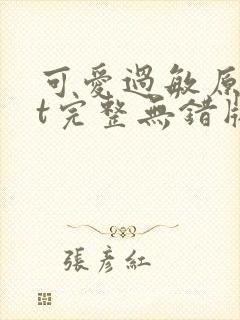 可愛過敏原
t完整無錯版
張彥紅